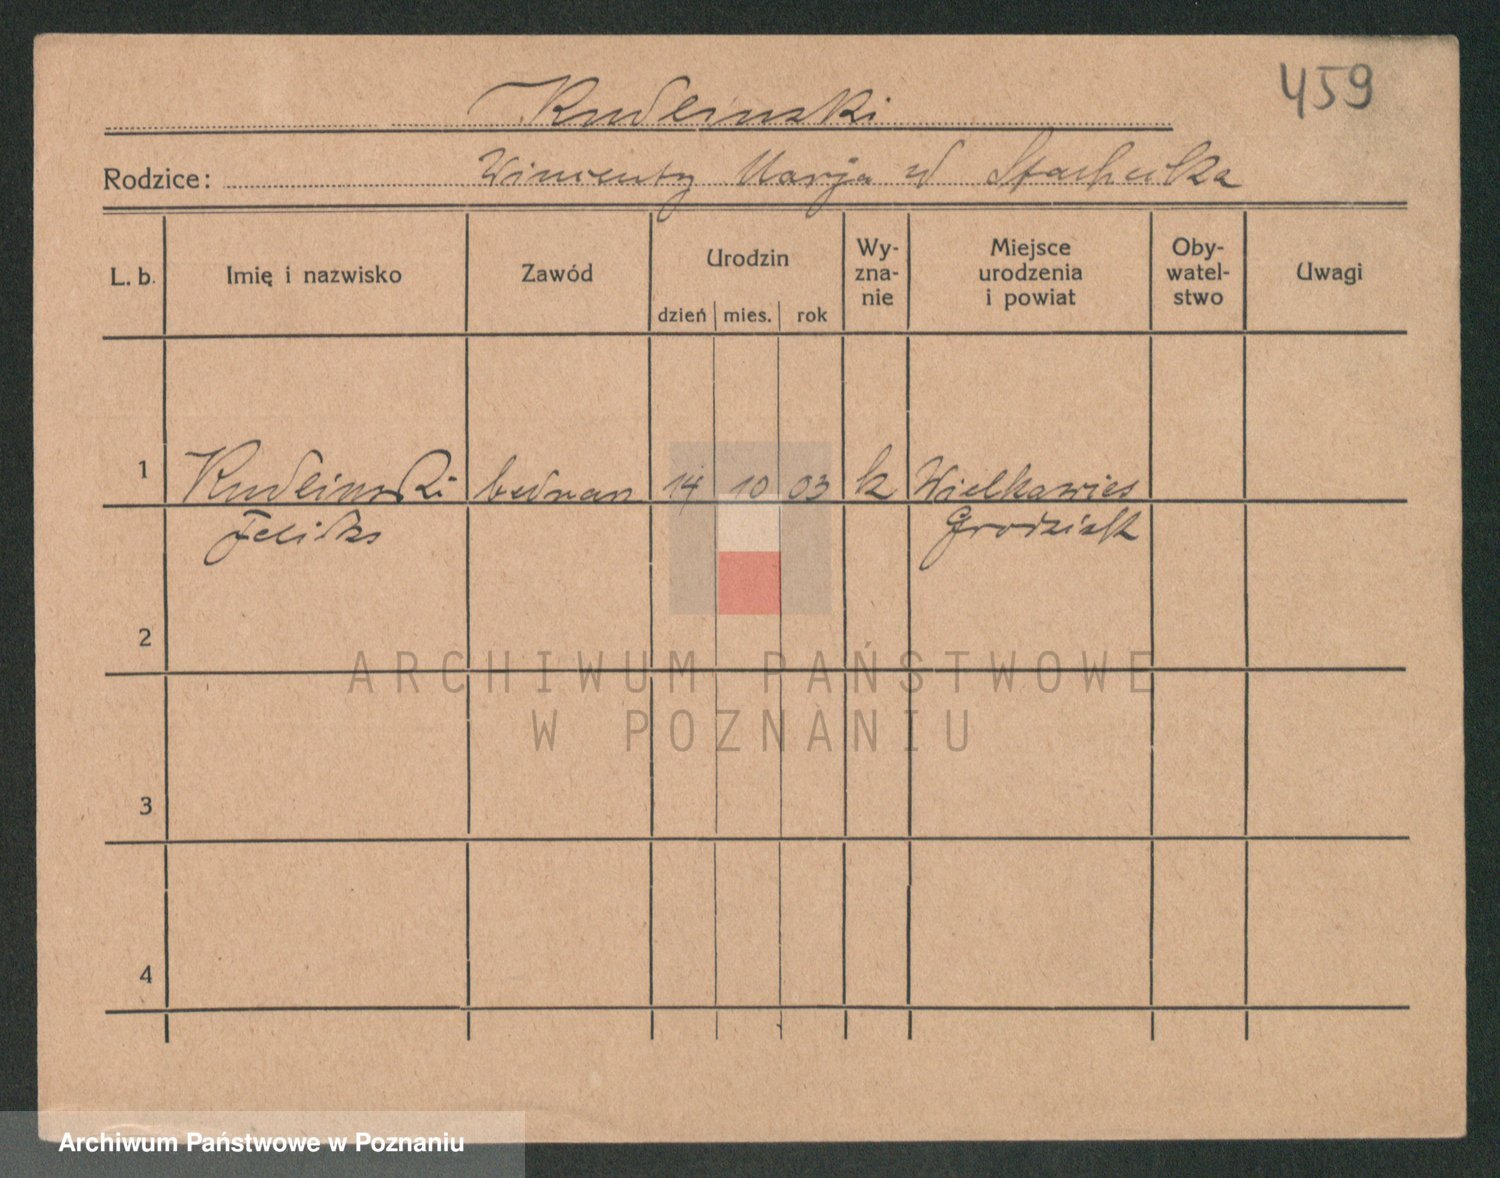 459
Kudlinski
Rodzice: Wincenty Marja
L. b. Imię i nazwisko Zawód Urodzin dzień mies. rok Wy-zna-nie Miejsce urodzenia i powiat Oby-watel-stwo Uwagi
1 Kudlinski bednarz 14 10 03 k Wielkawies
Feliks Grodzisk
2
ARCHIWUM PAŃSTWOWE
W POZNANIU
3
4
Archiwum Państwowe w Poznaniu